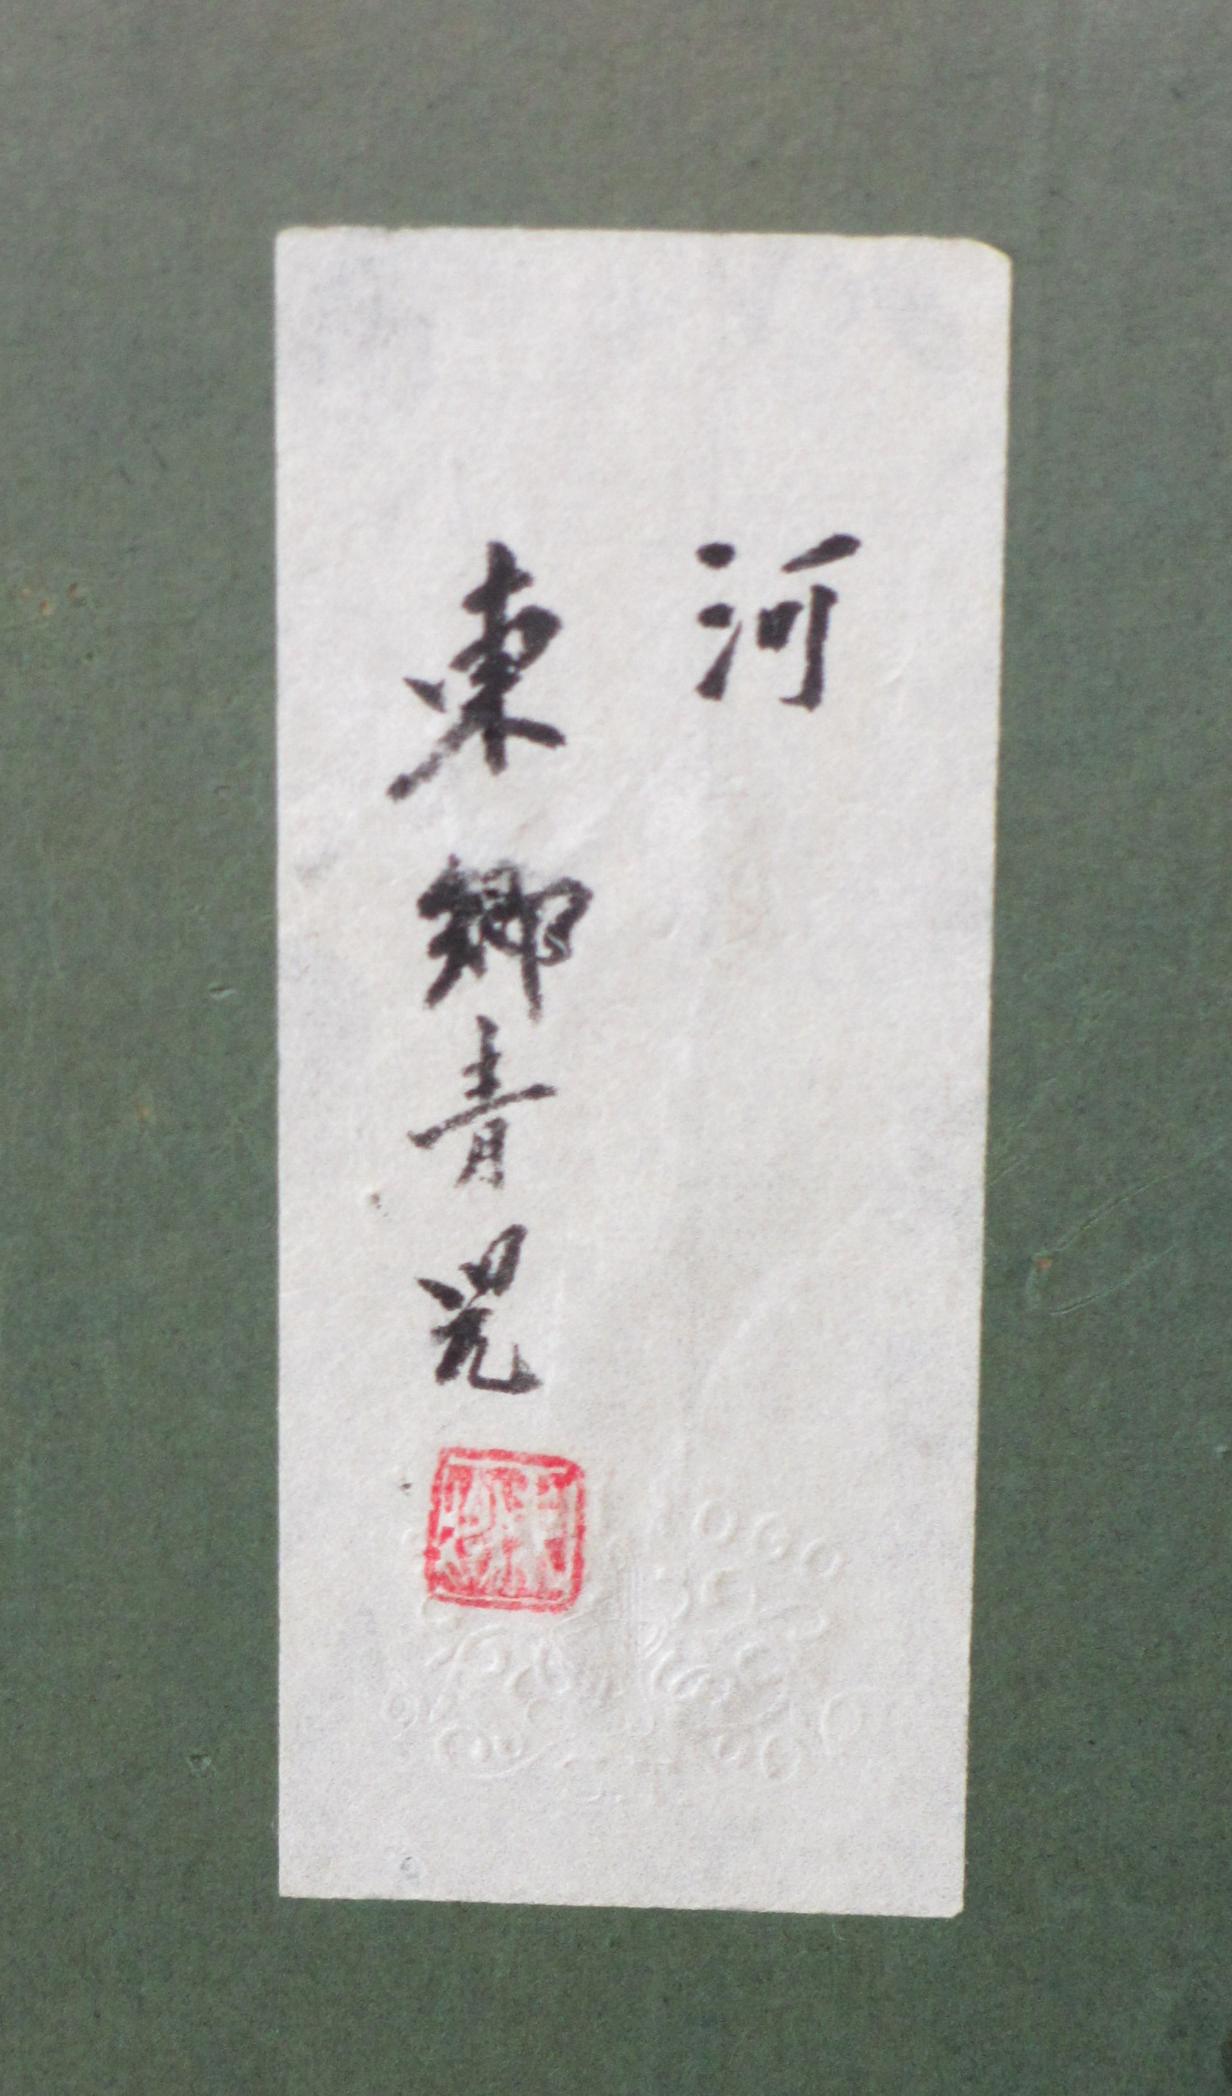 河
東郷青児